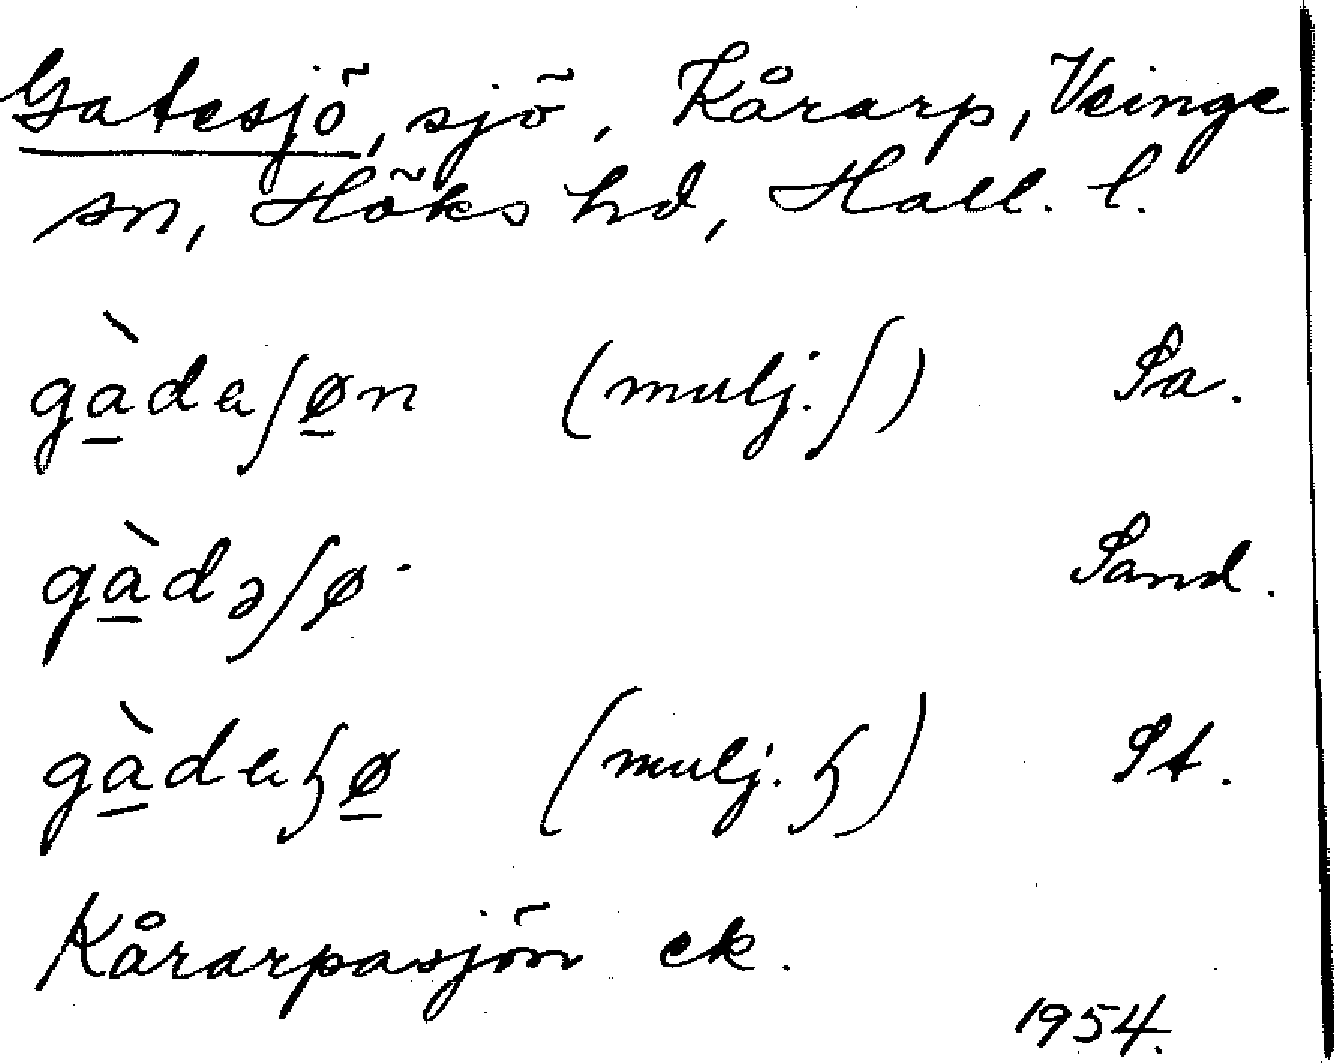 Gatesjö, sjö, Kårarp, Veinge
sn, Höks hd, Hall. l.
gàdaʃøn (mulj. ʃ) Pa.
gàdəʃø Pand.
gàdaɧø (mulj. ɧ) Pt.
Kårarpasjön ek.
1954.